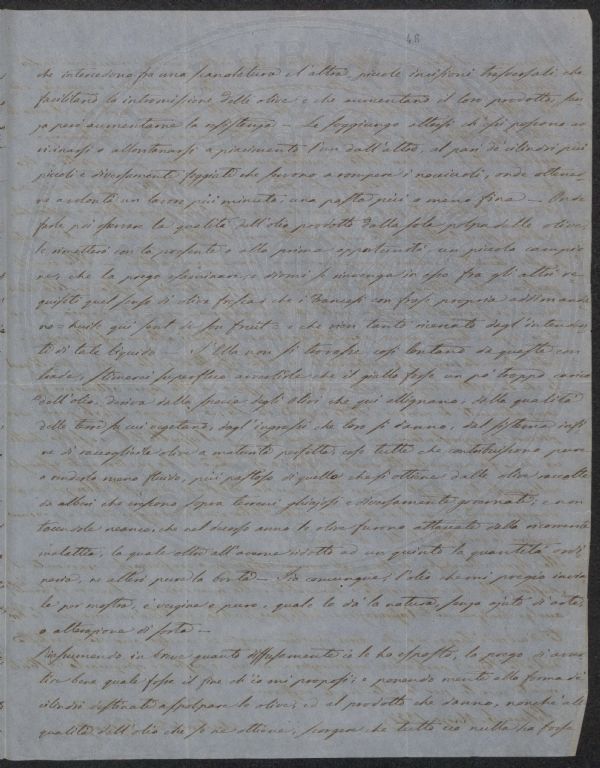 48
che intercedono fra una scanalatura e l'altra, piccole incisioni trasversali, che
facilitano la intromissione delle olive e che aumentano il loro prodotto, sen-
za però aumentarne la resistenza — Le soggiungo altresì ch'essi possono av-
vicinarsi o allontanarsi a piacimento l'un dall'altro, al pari de' cilindri più
piccoli e diversamente foggiati che servono a rompere i noccioli, onde ottene-
re a volontà un lavoro più minuto, una pasta più o meno fina — Onde
farle poi the la qualità dell'olio prodotto dalla sola polpa delle olive,
le rimetterò con la presente o alla prima opportunità un piccolo campio-
ne, che la prego esaminare, e dirmi se rinvenga in esso fra gli altri re-
quisiti quel senso di oliva fresca che i Francesi con frase propria addimanda-
no = huile qui sent de son fruit = e che vien tanto ricercato dagl'intenden-
ti di tale liquido — S'Ella non si trovasse così lontano da queste con-
trade, stimerei superfluo avvertirle che il giallo forse un po' troppo carico
dell'olio, deriva dalla specie degli olivi che qui allignano, dalla qualità
delle terre in cui vegetano, dagl'ingrassi che loro si danno, dal sistema infi-
ne di raccogliere le olive a maturità perfetta, cose tutte che contribuiscono pure
a renderlo meno fluido, più pastoso di quello che si ottiene dalle olive raccolte
da alberi che crescono sopra terreni ghiajosi e diversamente governati; e non
tacendole neanco, che nel decorso anno le olive furono attaccate dalla ricorrente
malattia, la quale oltre all'averne ridotto ad un quinto la quantità ordi-
naria, ne alterò pure la bontà — Sia comunque, l'olio che mi pregio inviar-
le per mostra, è vergine e puro, quale lo dà la natura, senza ajuti di arte,
o alterazione di sorta —
Riassumendo in breve quanto diffusamente io le ho esposto, la prego di avver-
tire bene quale fosse il fine ch'io mi proposi; e ponendo mente alla forma di
cilindri destinati a spolpare le olive, ed al prodotto che danno, nonchè alla
qualità dell'olio che se ne ottiene, scorgere che tutto ciò nulla ha forse